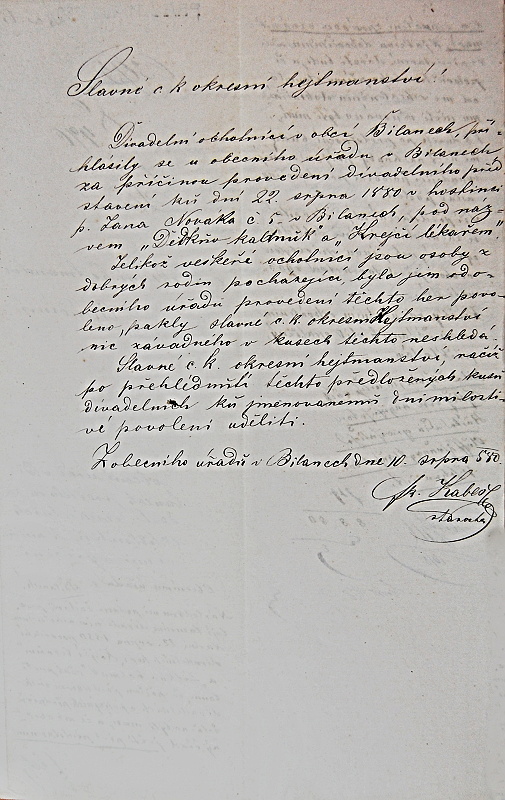 Slavné c k okresní hejtmanství!
Divadelní ochotníci v obci Bílanech, při-
hlásily se u obecního úřadu v Bílanech
za příčinou provedení divadelního před
stavení kú dni 22. srpna 1880 v hostinci
p. Jana Nováka č 5. v Bílanech, pod náz-
vem „ kaltnúk" a „Krejčí lékařem"
Jelikož veškeré ochotníci jsou osoby z
dobrých rodin pocházející, byla jem od o-
becního úřadu provedení těchto her povo-
leno, pakly slavné c. k. okresní Hejtmanství
nic závadného v kusech těchto neshledá.
Slavné c. k. okresní hejtmanství, račiž
po přehlédnutí těchto předložených kusů
divadelních kú jmenovanému dni milosti-
vé povolení uděliti.
Z obecního úřadu v Bílanech dne 10. srpna 880.
starosta